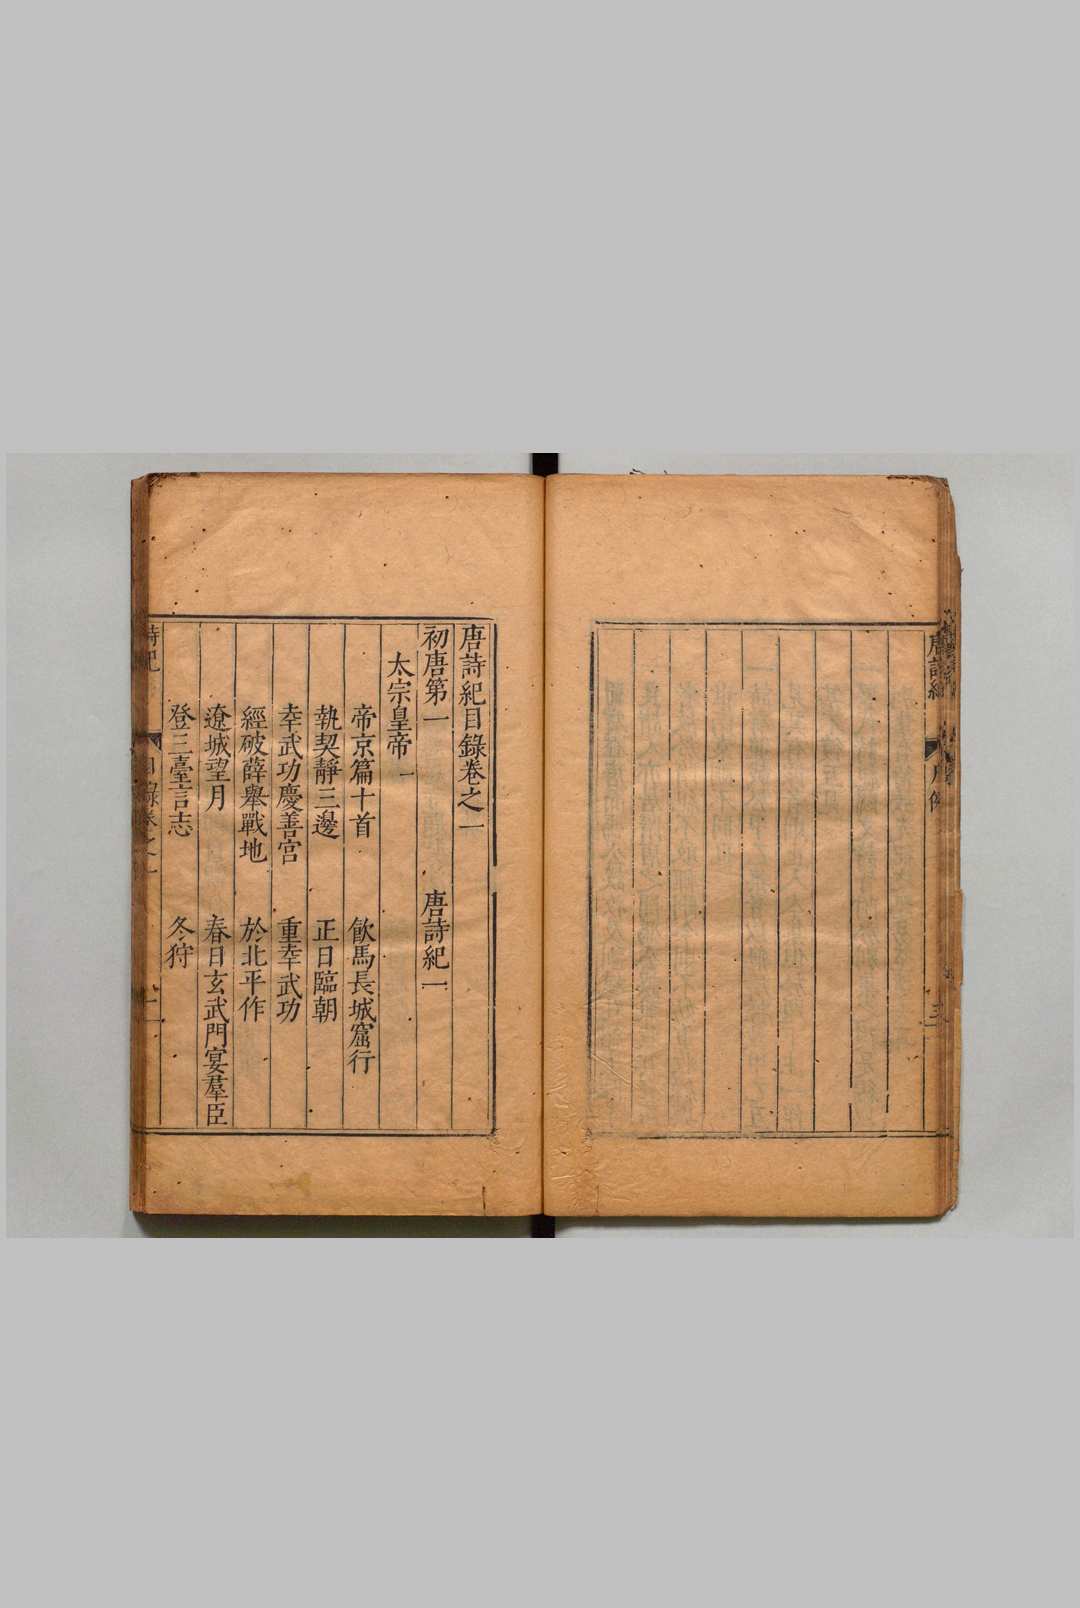 唐詩紀
三
唐詩紀目錄卷之一
初唐第一 唐詩紀一
太宗皇帝一
帝京篇十首 飲馬長城窟行
執契靜三邊 正日臨朝
幸武功慶善宮 重幸武功
經破薛舉戰地 於北平作
遼城望月 春日玄武門宴羣臣
登三臺言志 冬狩
詩紀